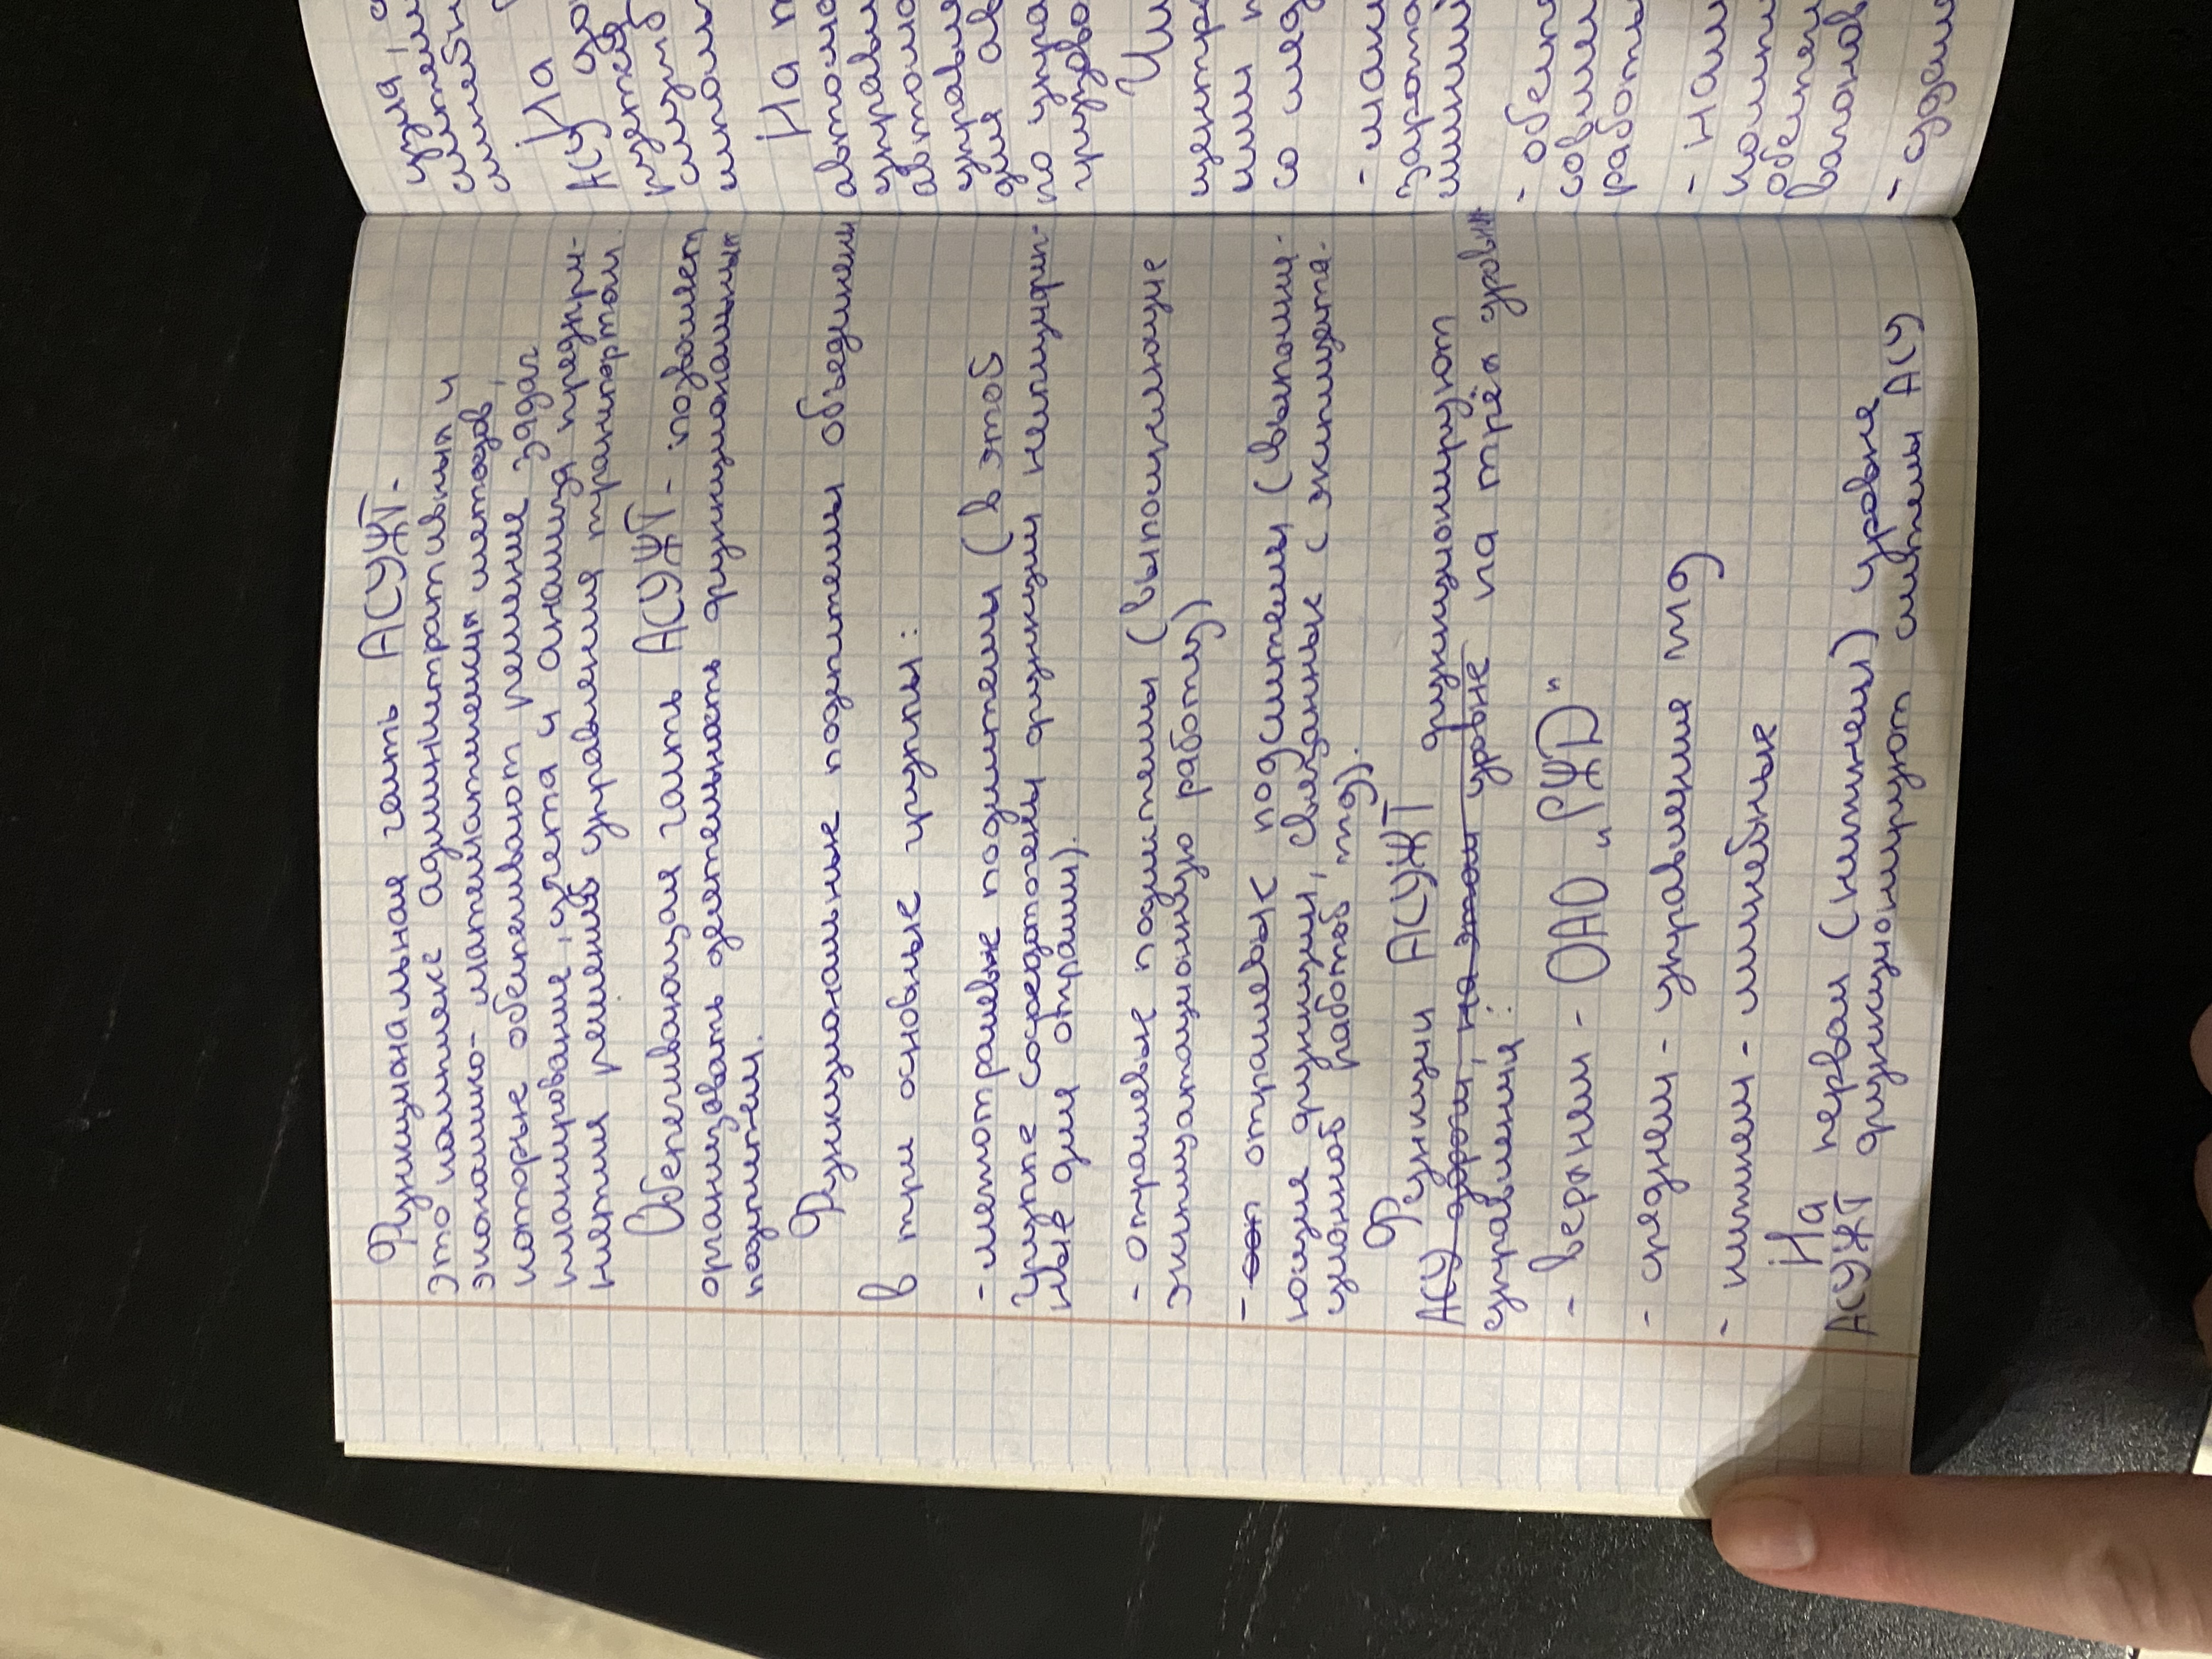 Функциональная часть АСУЖТ -
это комплекс административных и
экономико-математических методов,
которые обеспечивают решение задач
планирование, учета и анализа предпри-
нятия решений управления транспортом.
Обеспечивающая часть АСУЖТ - позволяет
организовать деятельность функциональных
подсистем.
Функциональные подсистемы объединены
в три основные группы:
- межотраслевые подсистемы (в этой
группе сосредоточены функции неспецифич-
ные для отрасли).
- отраслевые подсистемы (выполняющие
эксплуатационную работу)
- отраслевых подсистемы (выполня-
ющие функции, связанные с эксплуата-
ционной работой жд).
Функции АСУЖТ функционируют
АСУ дороги, на этом уровне на трёх уровнях
управления:
- верхнем - ОАО „РЖД"
- среднем - управление жд
- нижнем - линейные
На первом (нижнем) уровне
АСУЖТ функционируют системы АСУ
узла, с
системы
линейн
На
АСУ до
На п
автомо
управл
автомо
управле
для ав
по упра
центр
со след
- обесп
работы
- суд